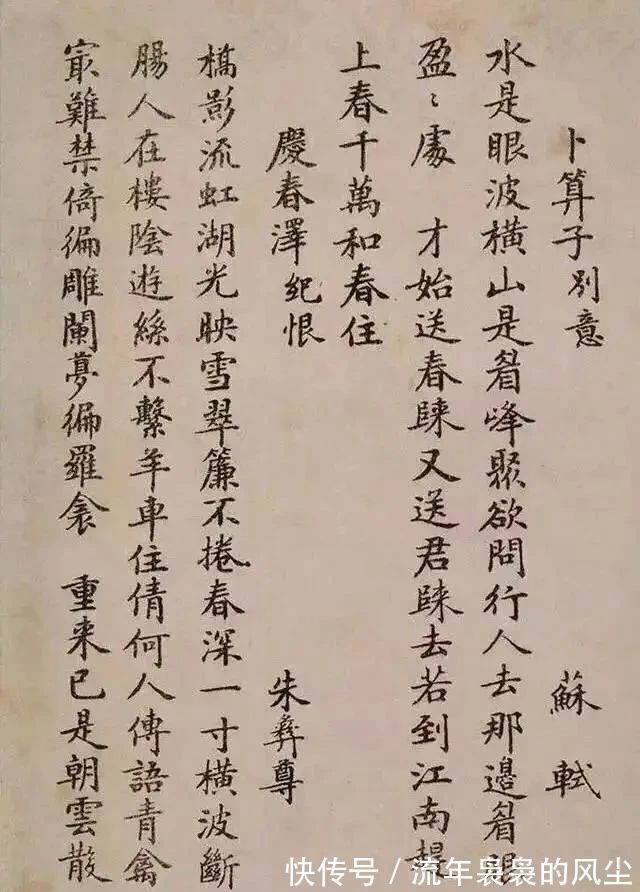 卜算子 別意 蘇軾
水是眼波橫山是眉峰聚欲問行人去那邊眉眼
盈〻處 才始送春歸又送君歸去若到江南趕
上春千萬和春住
慶春澤 紀恨 朱彝尊
橋影流虹湖光映雪翠簾不捲春深一寸橫波斷
腸人在樓陰遊絲不繫羊車住倩何人傳語青禽
㝡難禁倚徧雕闌夢徧羅衾 重来已是朝雲散
快传号 / 流年袅袅的风尘